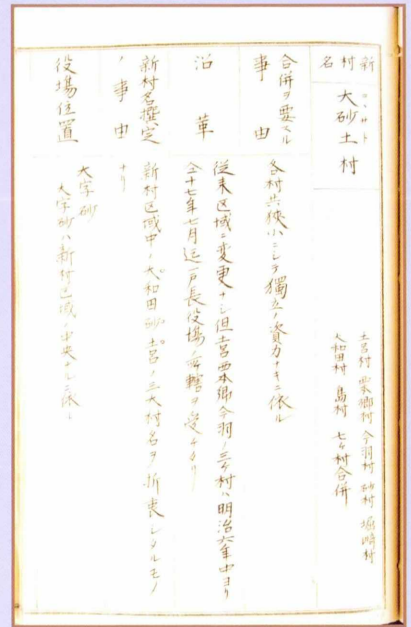 新村名
オオサト
大砂土村
土呂村 西本郷村 今羽村 砂村 堀崎村
大和田村 島村 七ケ村合併
合併ヲ要スル事由
各村共狭小ニシテ獨立ノ資力ナキニ依ル
沿革
従来区域ニ変更ナシ但土呂西本郷今羽ノ三ケ村ハ明治六年中ヨリ
仝十七年七月迄一戸長役場ノ所轄ヲ受ケタリ
新村名撰定ノ事由
新村区域中ノ大和田砂土呂ノ三大村名ヲ折衷シタルモノ
ナリ
役場位置
大字砂
大字砂ハ新村区域ノ中央ナルニ依ル